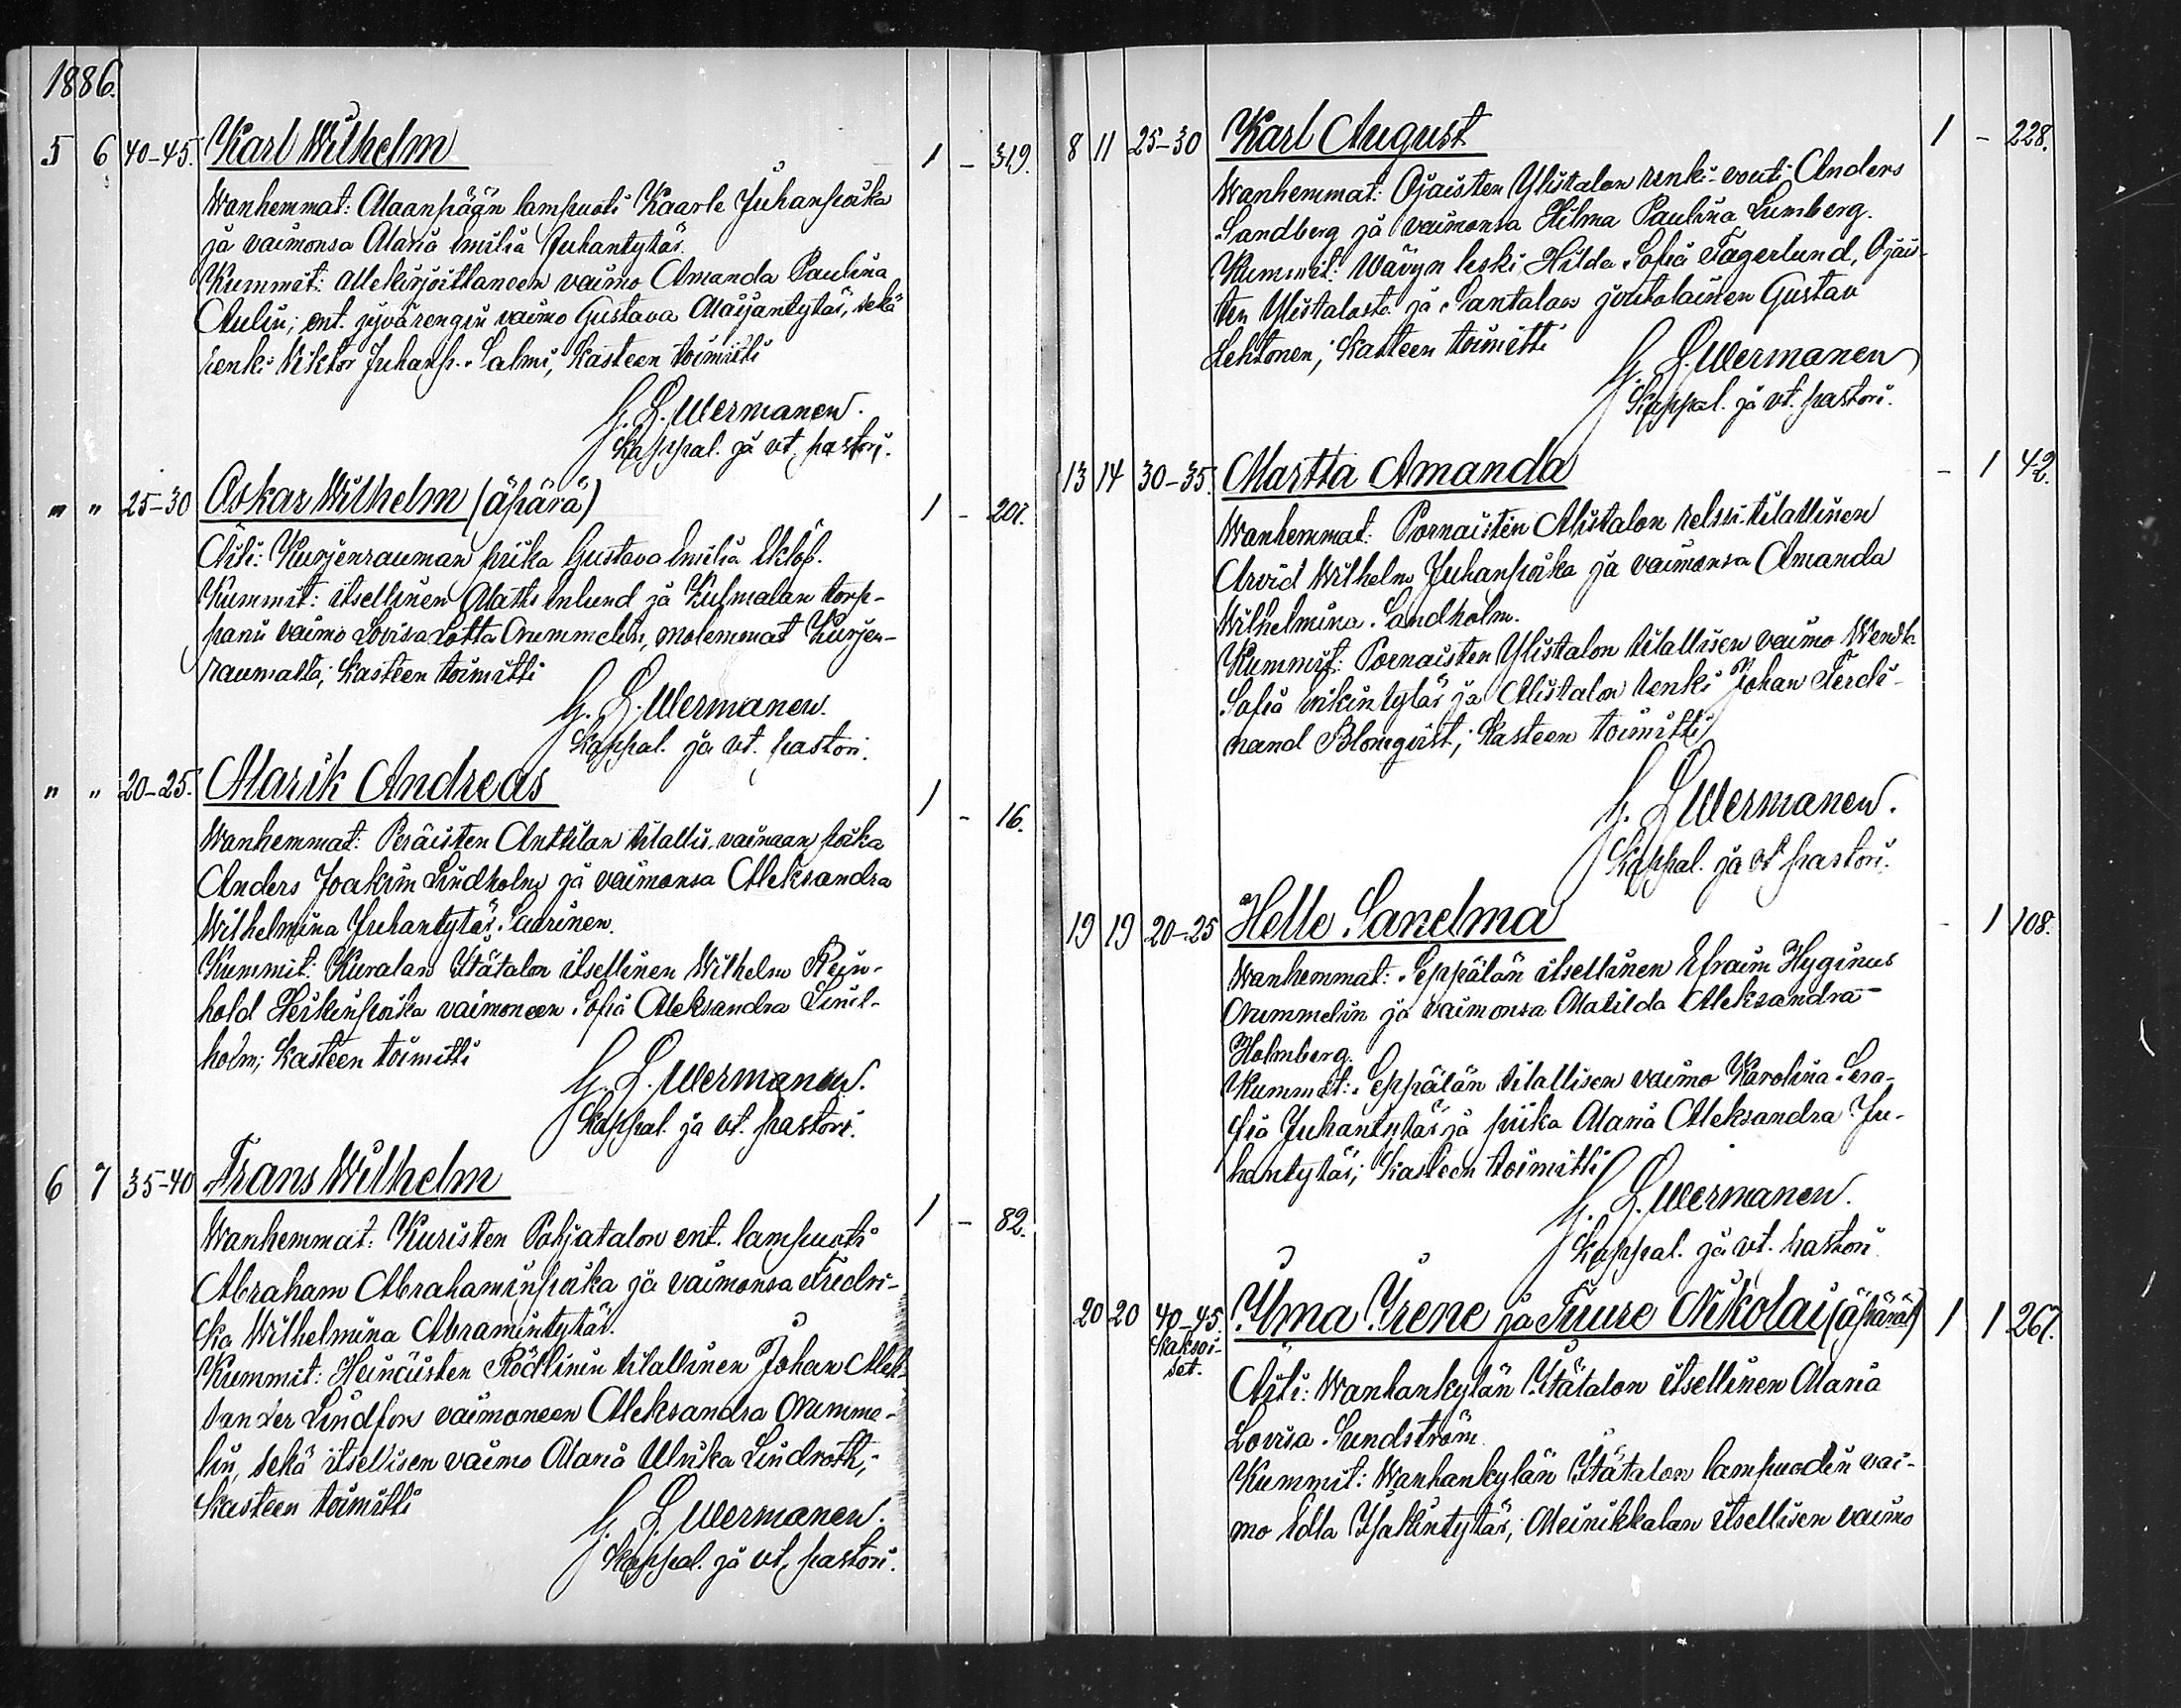 1886.
5 6 40-45. Karl Wilhelm 1 - 319.
Wanhemmat: Maanpään lampuoti Kaarle Juhanpoika
ja vaimonsa Maria Emilia Juhantytär.
Kummit: allekirjoittaneen vaimo Amanda Paulina
Aulin; ent. jyvärengin vaimo Gustava Maijantytär, sekä
renki Viktor Juhanp. Salmi; Kasteen toimitti
G. L. Wermanen.
Kappal. ja vt. pastori.
" " 25-30 Oskar Wilhelm (äpärä) 1 - 207.
Äiti: Kurjenrauman piika Gustava Emilia Eklöf.
Kummit: itsellinen Matts Enlund ja Kulmalan torp-
parin vaimo Lovisa Lotta Nummelin, molemmat Kurjen-
raumalta; Kasteen toimitti
G. L. Wermanen.
Kappal. ja vt. pastori.
" " 20-25. Marik Andreas 1 - 16.
Wanhemmat: Peräisten Anttilan tilallis. vainaan poika
Anders Joakim Lindholm ja vaimonsa Aleksandra
Wilhelmina Juhantytär Saarinen.
Kummit: Kuralan Itätalon itsellinen Wilhelm Rein-
hold Heikinpoika vaimoneen Sofia Aleksandra Lind-
holm; Kasteen toimitti
G. L. Wermanen.
Kappal. ja vt. pastori.
6 7 35-40 Frans Wilhelm 1 - 82.
Wanhemmat: Kuristen Pohjatalon ent. lampuoti
Abraham Abrahaminpoika ja vaimonsa Fredri-
ka Wilhelmina Abramintytär.
Kummit: Heinäisten Rödlinin tilallinen Johan Alek-
sander Lindfors vaimoneen Aleksandra Numme-
lin, sekä itsellisen vaimo Maria Ulrika Lindroth;
Kasteen toimitti
G. L. Wermanen.
Kappal. ja vt. pastori.
8 11 25-30 Karl August 1 - 228.
Wanhemmat: Ojaisten Ylistalon renki-vouti Anders
Sandberg ja vaimonsa Hilma Paulina Lumberg.
Kummit: Wävyn leski Hilda Sofia Fagerlund, Ojais-
ten Ylistalosta ja Santalan joutolainen Gustav
Lehtonen; Kasteen toimitti
G. L. Wermanen
Kappal. ja vt. pastori.
13 14 30-35. Martta Amanda - 1 42.
Wanhemmat: Pornaisten Alistalon relssi-tilallinen
Arvid Wilhelm Juhanpoika ja vaimonsa Amanda
Wilhelmina Sandholm.
Kummit: Pornaisten Ylistalon tilallisen vaimo Wendla
Sofia Erikintytär ja Alistalon renki Johan Ferdi-
nand Blomqvist; Kasteen toimitti
G. L. Wermanen.
Kappal. ja vt. pastori.
19 19 20-25 Helle Sanelma - 1 108.
Wanhemmat: Seppälän itsellinen Efraim Hyginus
Nummelin ja vaimonsa Matilda Aleksandra
Holmberg.
Kummit: Seppälän tilallisen vaimo Karolina Sera-
fia Juhantytär ja piika Maria Aleksandra Ju-
hantytär; Kasteen toimitti
G. L. Wermanen.
Kappal. ja vt. pastori
20 20 40-45. Ilma Irene ja Tuure Nikolai (äpärät) 1 1 267.
Kaksoi-
set.
Äiti: Wanhankylän Itätalon itsellinen Maria
Lovisa Sundström
Kummit: Wanhankylän Itätalon lampuodin vai-
mo Edla Isakintytär; Meinikkalan itsellisen vaimo